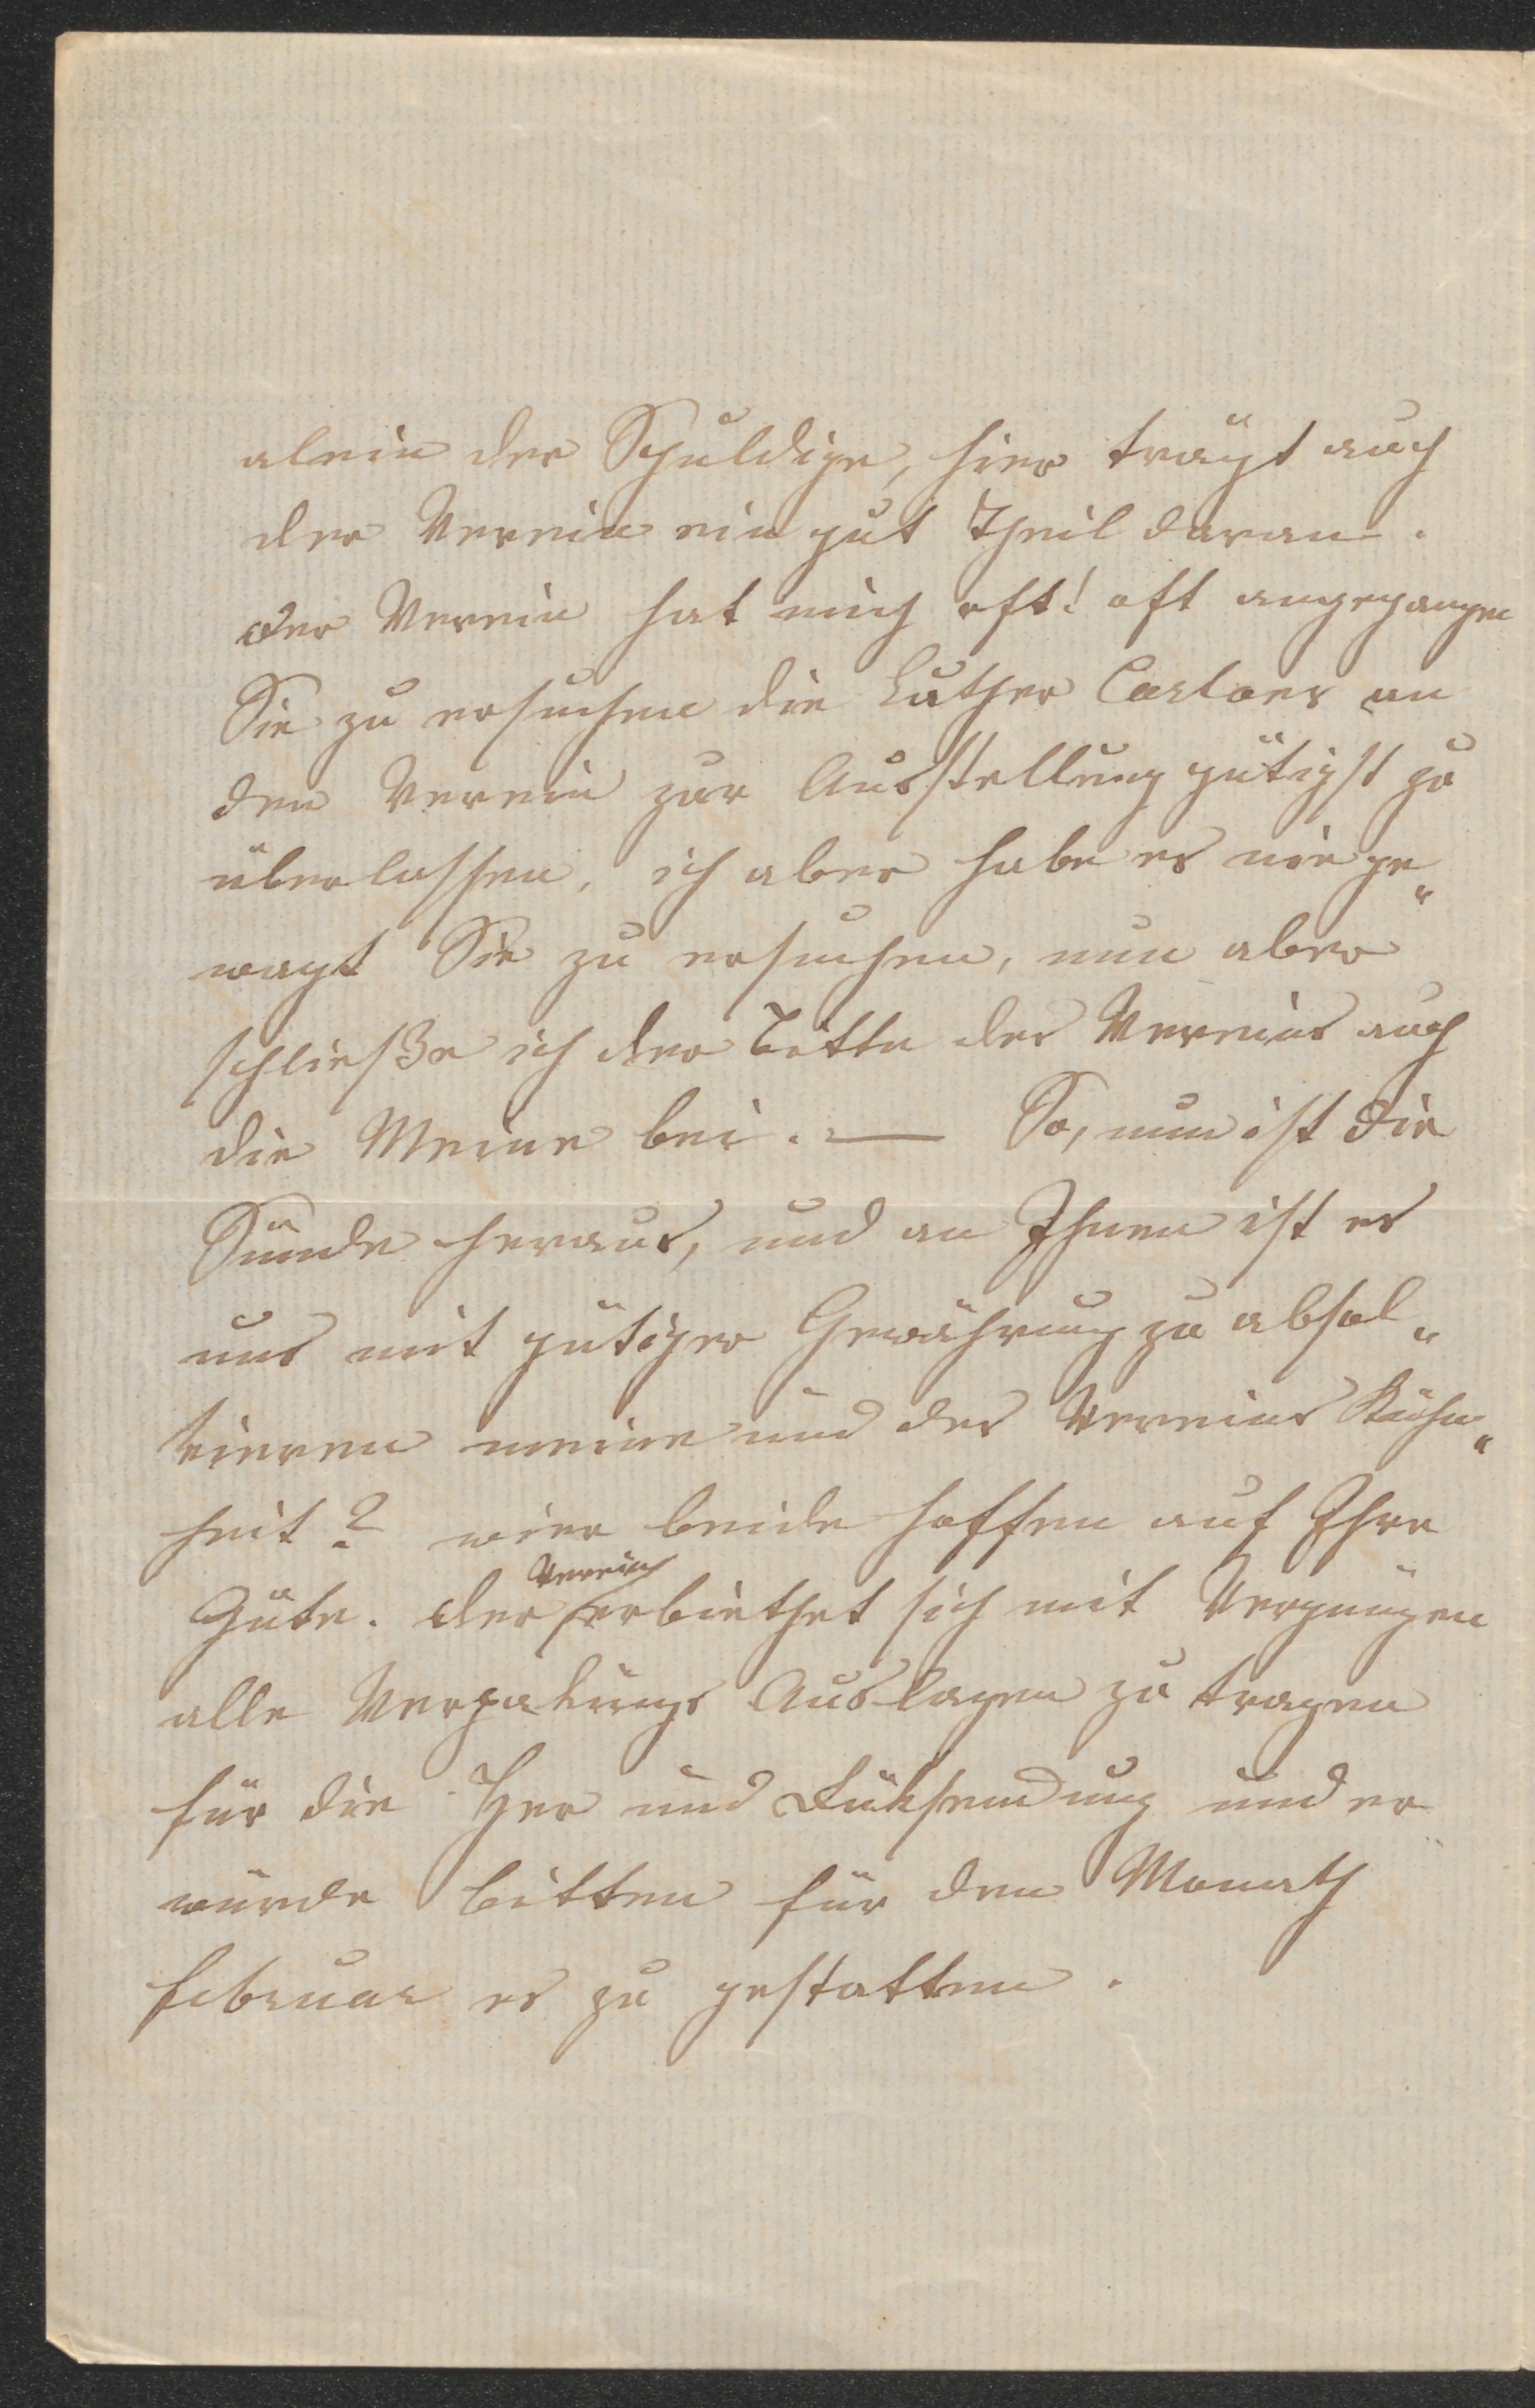 alein der Schuldige, hier trägt auch
der Verein ein gut Theil daran.
der Verein hat mich oft! oft angegangen
Sie zu ersuchen die Luther Cartons an
den Verein zur Ausstellung gütigst zu
überlassen, ich aber habe es nie ge„
wagt Sie zu ersuchen, nun aber
schließe ich der Bitte des Vereins auch
die Meine bei. — So, nun ist die
Sünde heraus, und an Ihnen ist es
uns mit gütiger Gewährung zu absol„
vieren meine und des Vereins Kühn„
heit? wier beide hoffen auf Ihre
Güte. der Verein erbiethet sich mit Vergnügen
alle Verpakungs Auslagen zu tragen
für die Her und Rüksendung und er
würde bitten für den Monath
Februar es zu gestatten.